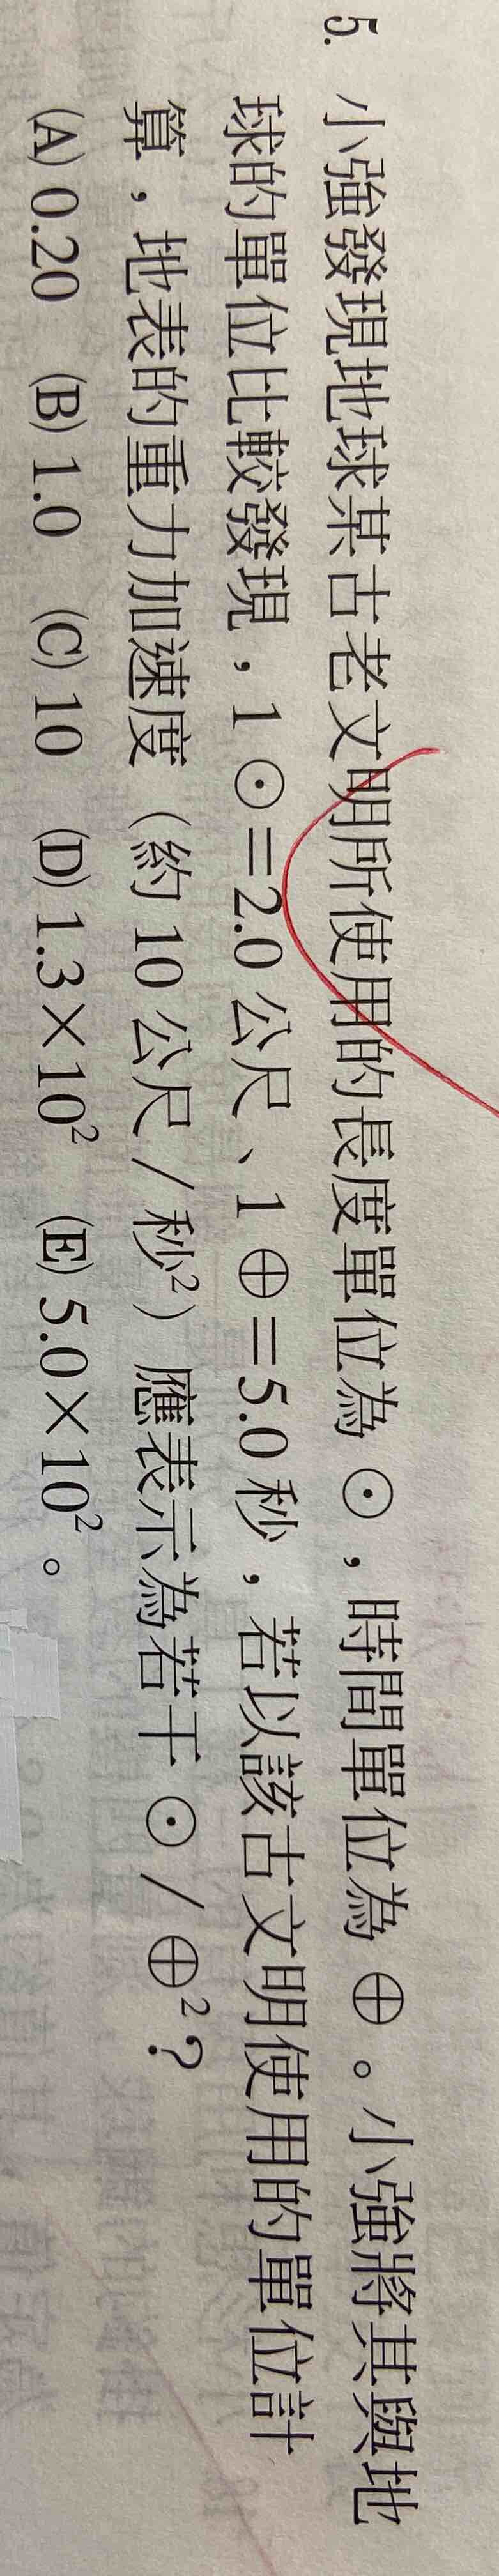 5. 小強發現地球某古老文明所使用的長度單位為⊙，時間單位為⊕。小強將其與地
球的單位比較發現，1⊙=2.0公尺、1⊕=5.0秒，若以該古文明使用的單位計
算，地表的重力加速度（約10公尺/秒²）應表示為若干⊙/⊕²？
(A) 0.20 (B) 1.0 (C) 10 (D) 1.3×10² (E) 5.0×10²。